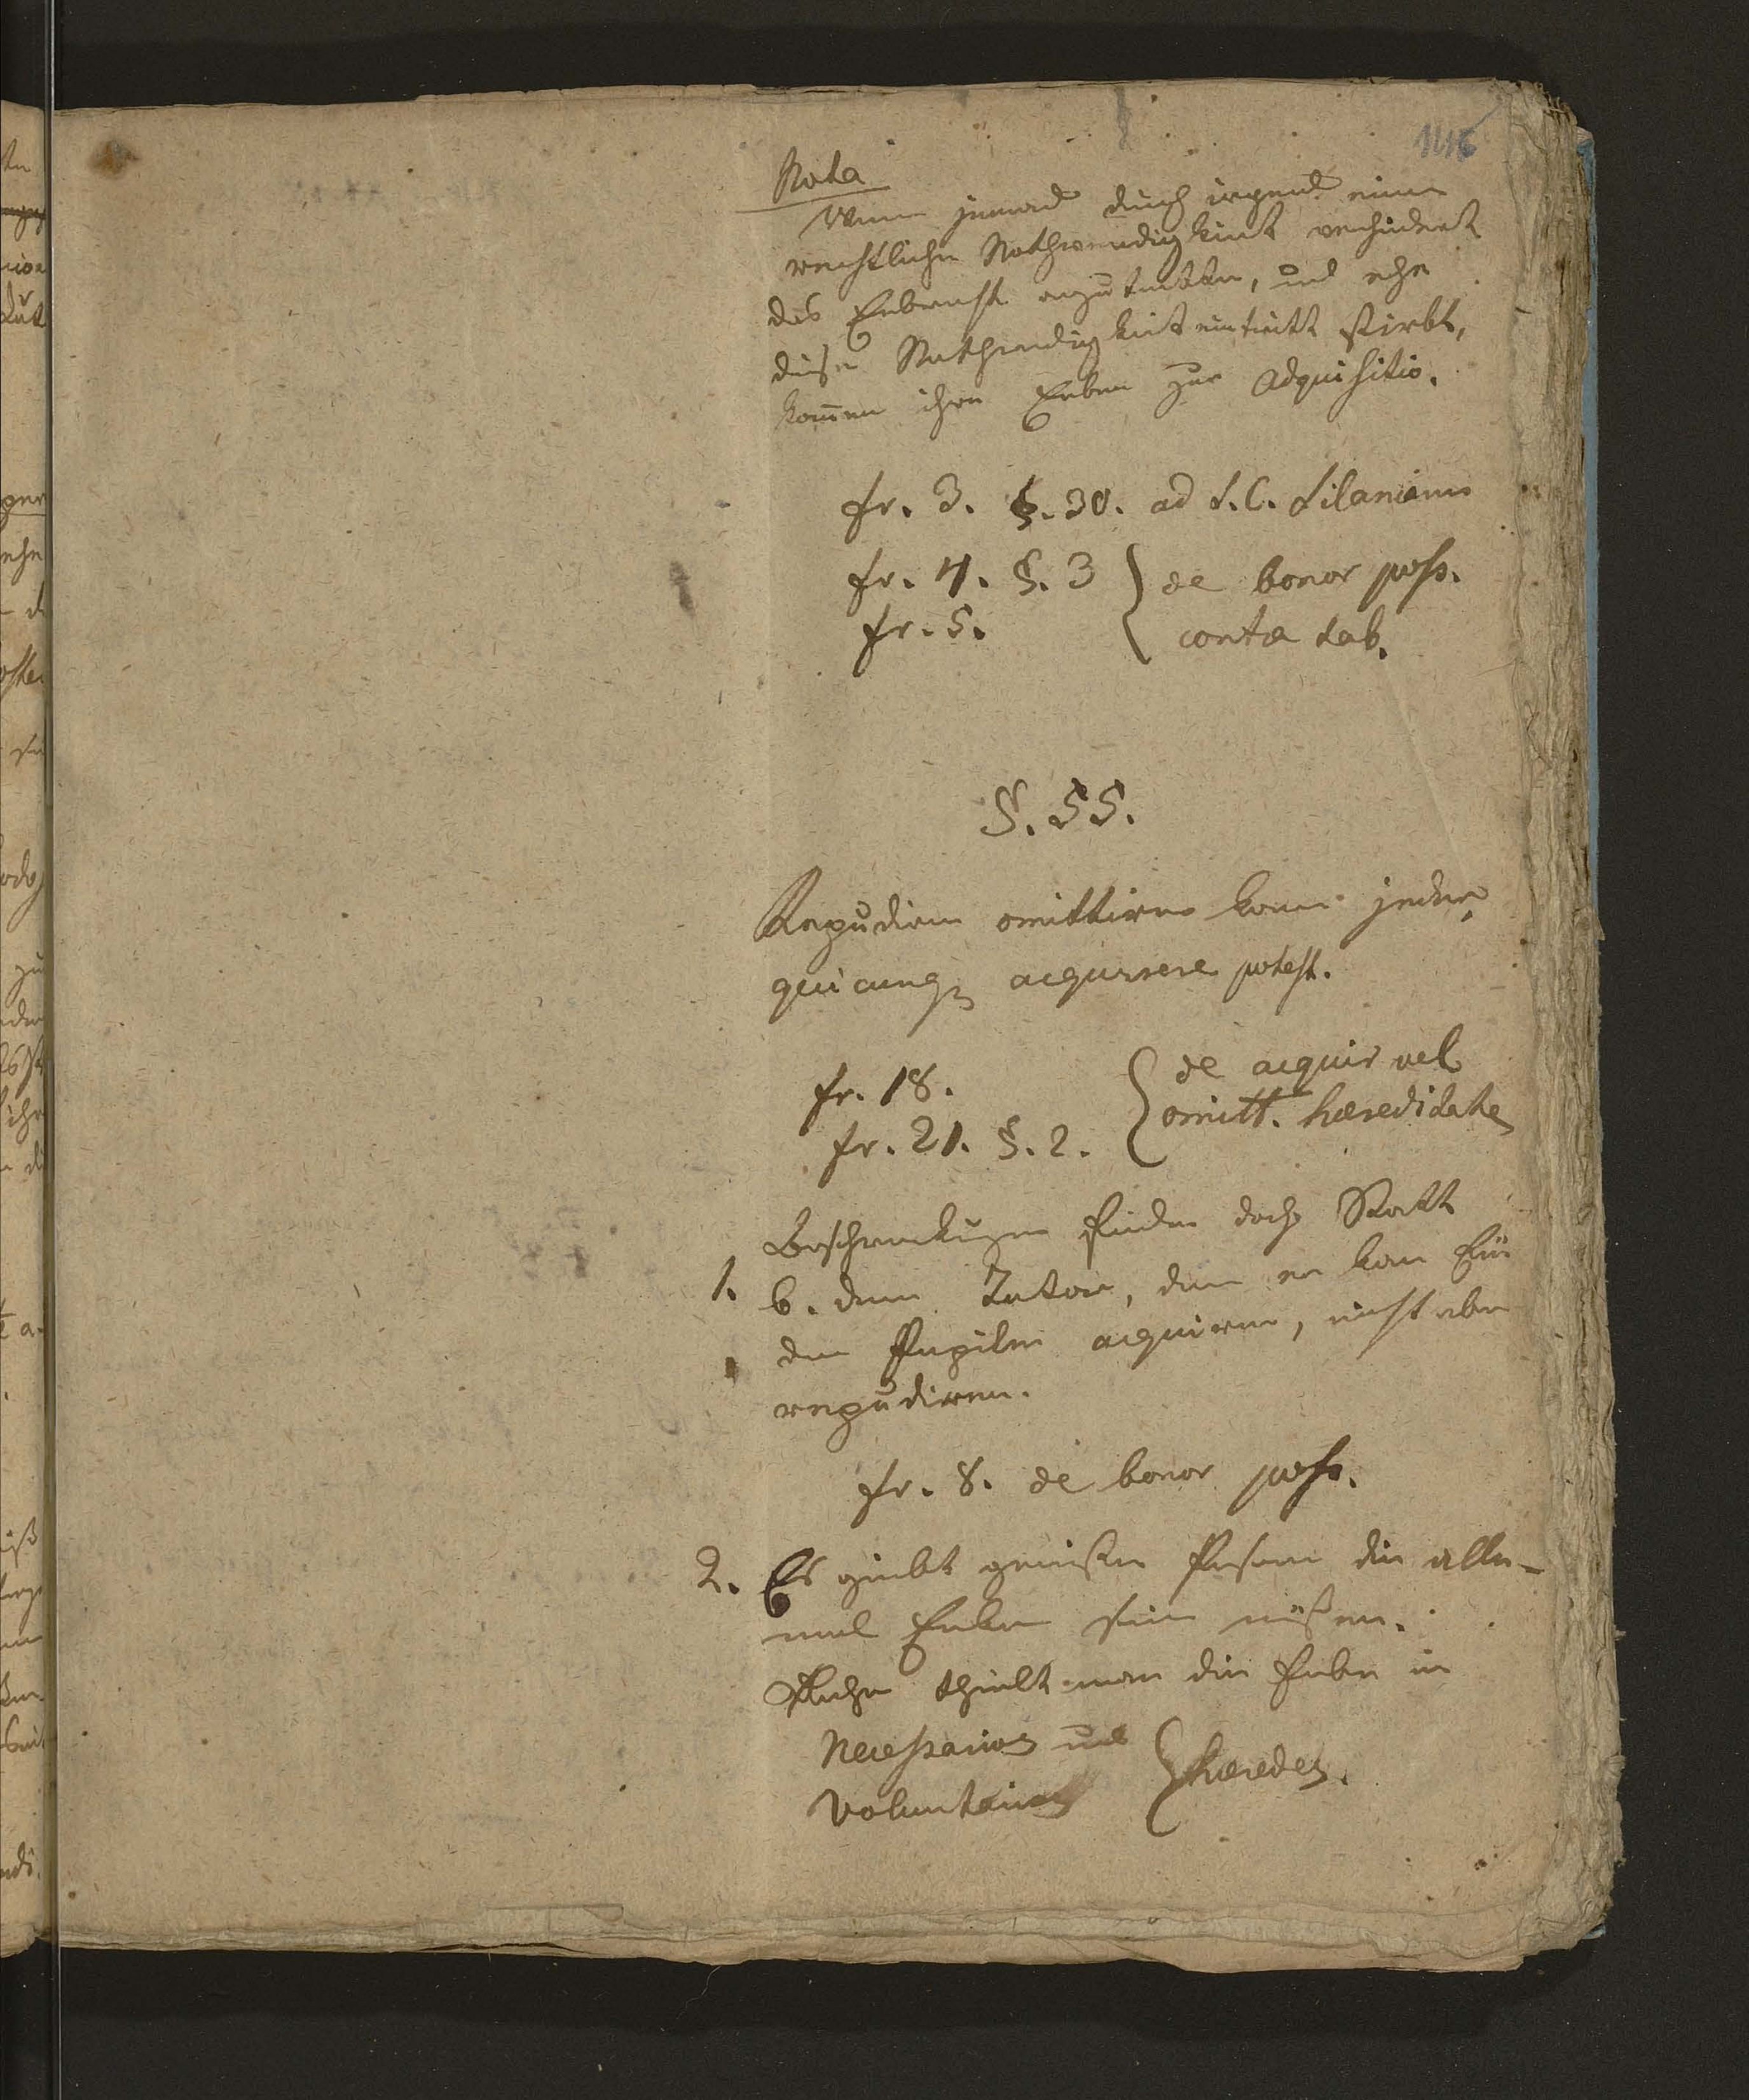 1116
Nota
Wenn jemand durch irgend eine
rechtliche Nothwendigkeit verhindert
das Erbrecht anzutretten, und ehe
diese Nothwendigkeit eintritt stirbt,
kom̅en ihre Erben zur Adquisitio.
fr. 3. §. 30. ad S.C. Silanianu
fr. 4. §. 3 de bonor poss.
fr. 5. contra tab.
§. 55.
Repudiren omittiren kann jeder
quicunq acquirere potest.
fr. 18. de acquir vel
fr. 21. §. 2. omitt. hæreditate
Beschrenkungen finden doch Statt
1. b. dem Tutor, denn er kan für
den Pupilen acquiren, nicht aber
repudiren.
fr. 8. de bonor poss.
2. Es giebt gewißen Person die alle-
mal Erben sein müßen.
Daher theilt man die Erben in
Necessarios und
Voluntarios heredes.